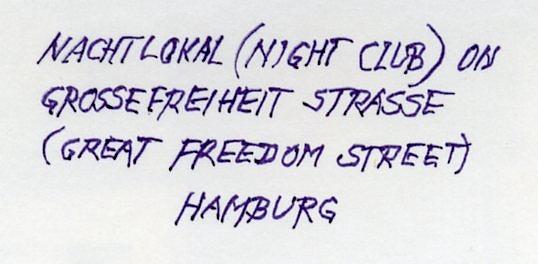 NACHTLOKAL (NIGHT CLUB) ON
GROSSEFREIHEIT STRASSE
(GREAT FREEDOM STREET)
HAMBURG